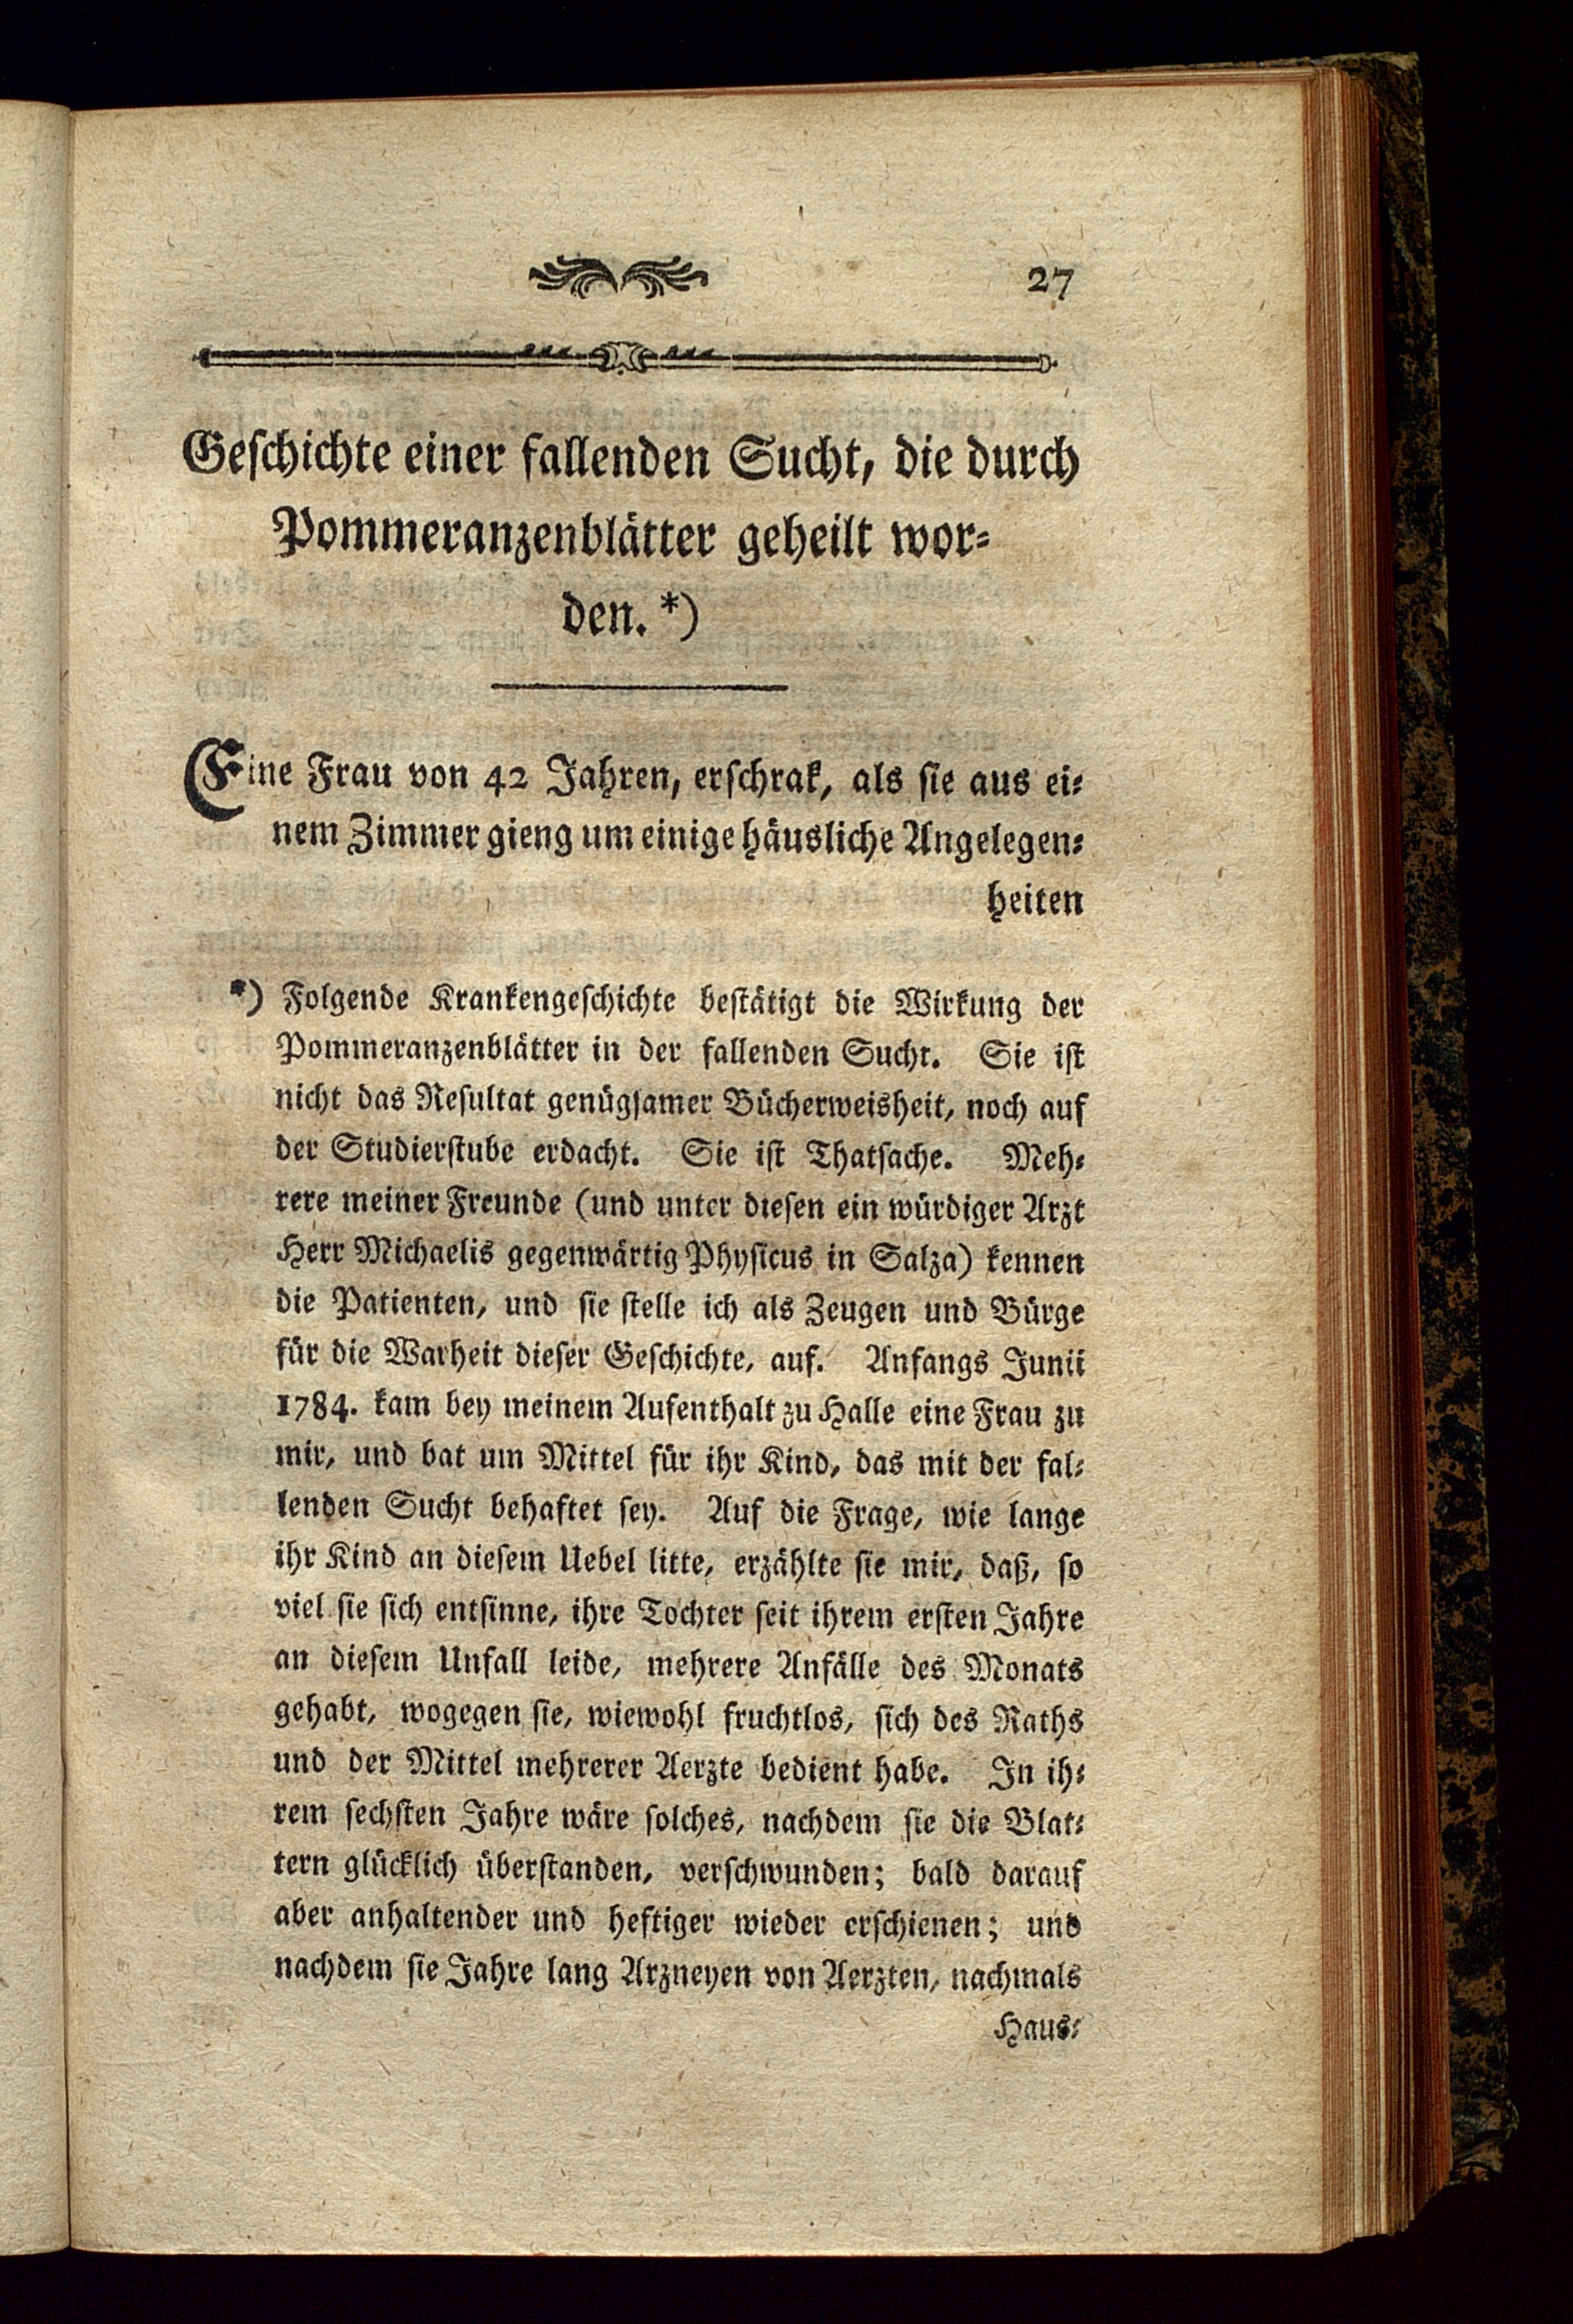 27
Geschichte einer fallenden Sucht, die durch
Pommeranzenblätter geheilt wor-
den. *)
Eine Frau von 42 Jahren, erschrak, als sie aus ei-
nem Zimmer gieng um einige häusliche Angelegen-
heiten
*) Folgende Krankengeschichte bestätigt die Wirkung der
Pommeranzenblätter in der fallenden Sucht. Sie ist
nicht das Resultat genügsamer Bücherweisheit, noch auf
der Studierstube erdacht. Sie ist Thatsache. Meh-
rere meiner Freunde (und unter diesen ein würdiger Arzt
Herr Michaelis gegenwärtig Physicus in Salza) kennen
die Patienten, und sie stelle ich als Zeugen und Bürge
für die Warheit dieser Geschichte, auf. Anfangs Junii
1784. kam bey meinem Aufenthalt zu Halle eine Frau zu
mir, und bat um Mittel für ihr Kind, das mit der fal-
lenden Sucht behaftet sey. Auf die Frage, wie lange
ihr Kind an diesem Uebel litte, erzählte sie mir, daß, so
viel sie sich entsinne, ihre Tochter seit ihrem ersten Jahre
an diesem Unfall leide, mehrere Anfälle des Monats
gehabt, wogegen sie, wiewohl fruchtlos, sich des Raths
und der Mittel mehrerer Aerzte bedient habe. In ih-
rem sechsten Jahre wäre solches, nachdem sie die Blat-
tern glücklich überstanden, verschwunden; bald darauf
aber anhaltender und heftiger wieder erschienen; und
nachdem sie Jahre lang Arzneyen von Aerzten, nachmals
Haus-